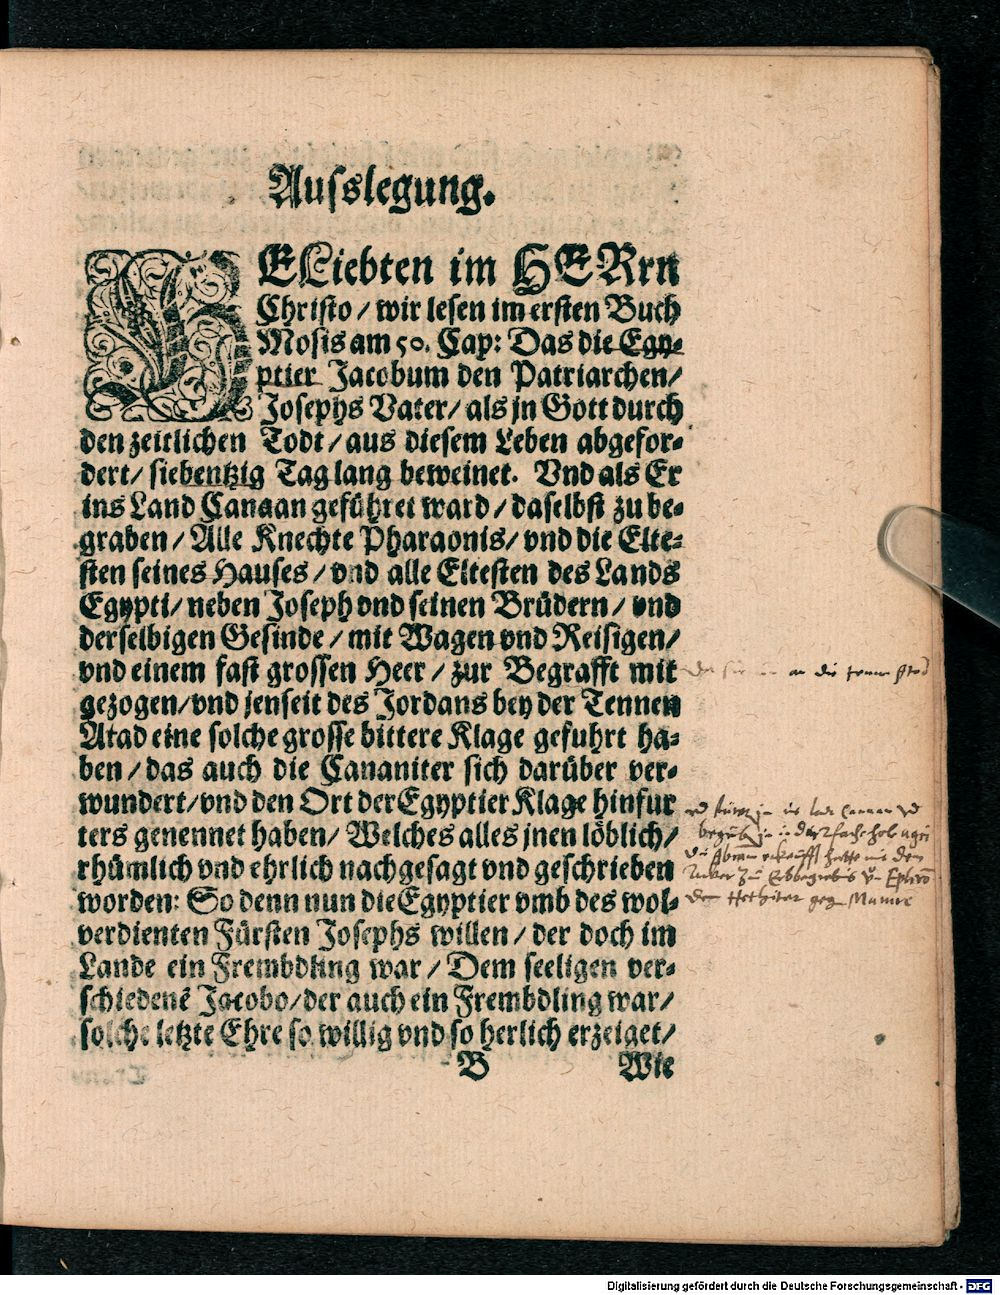 Ausslegung.
GELiebten im HERrn
Christo / wir lesen im ersten Buch
Mosis am 50. Cap: Das die Egy-
ptier Jacobum den Patriarchen /
Josephs Vater / als jn Gott durch
den zeitlichen Todt / aus diesem Leben abgefor-
dert / siebentzig Tag lang beweinet. Vnd als Er
ins Land Canaan geführet ward / daselbst zu be-
graben / Alle Knechte Pharaonis / vnd die Elte-
sten seines Hauses / vnd alle Eltesten des Lands
Egypti / neben Joseph vnd seinen Brüdern / vnd
derselbigen Gesinde / mit Wagen vnd Reisigen /
vnd einem fast grossen Heer / zur Begrafft mit
gezogen / vnd jenseit des Jordans bey der Tennen
Atad eine solche grosse bittere Klage gefuhrt ha-
ben / das auch die Cananiter sich darüber ver-
wundert / vnd den Ort der Egyptier Klage hinfur
ters genennet haben / Welches alles jnen löblich /
rhümlich vnd ehrlich nachgesagt vnd geschrieben
worden: So denn nun die Egyptier vmb des wol-
verdienten Fürsten Josephs willen / der doch im
Lande ein Frembdling war / Dem seeligen ver-
schiedenē Jacobo / der auch ein Frembdling war /
solche letzte Ehre so willig vnd so herlich erzeiget /
B Wie
an die
Canaan
hette mit dem
Acker zu Erbbegrebnis
dem Hethiter gegen Mamre
Digitalisierung gefördert durch die Deutsche Forschungsgemeinschaft - DFG